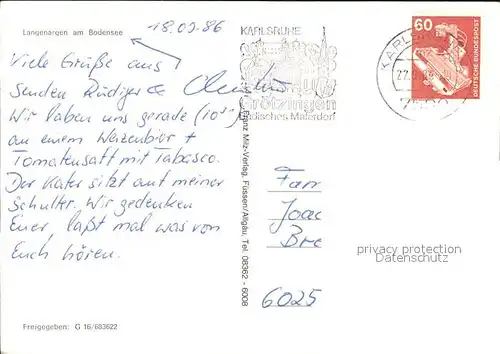 Langenargen am Bodensee
18.09.86
Viele Grüße aus
senden Rüdiger &
Wir laben uns gerade (10⁰⁰)
an einem Weizenbier +
Tomatensaft mit Tabasco.
Der Kater sitzt auf meiner
Schulter. Wir gedenken
Euer, laßt mal was von
Euch hören.
Freigegeben: G 16/683622
Franz Milz-Verlag, Füssen/Allgäu, Tel. 08362 - 6008
KARLSRUHE
Grötzingen
Badisches Malerdorf
KARLSRUHE
60
DEUTSCHE BUNDESPOST
Fam
Joac
Bre
6025
privacy protection
Datenschutz